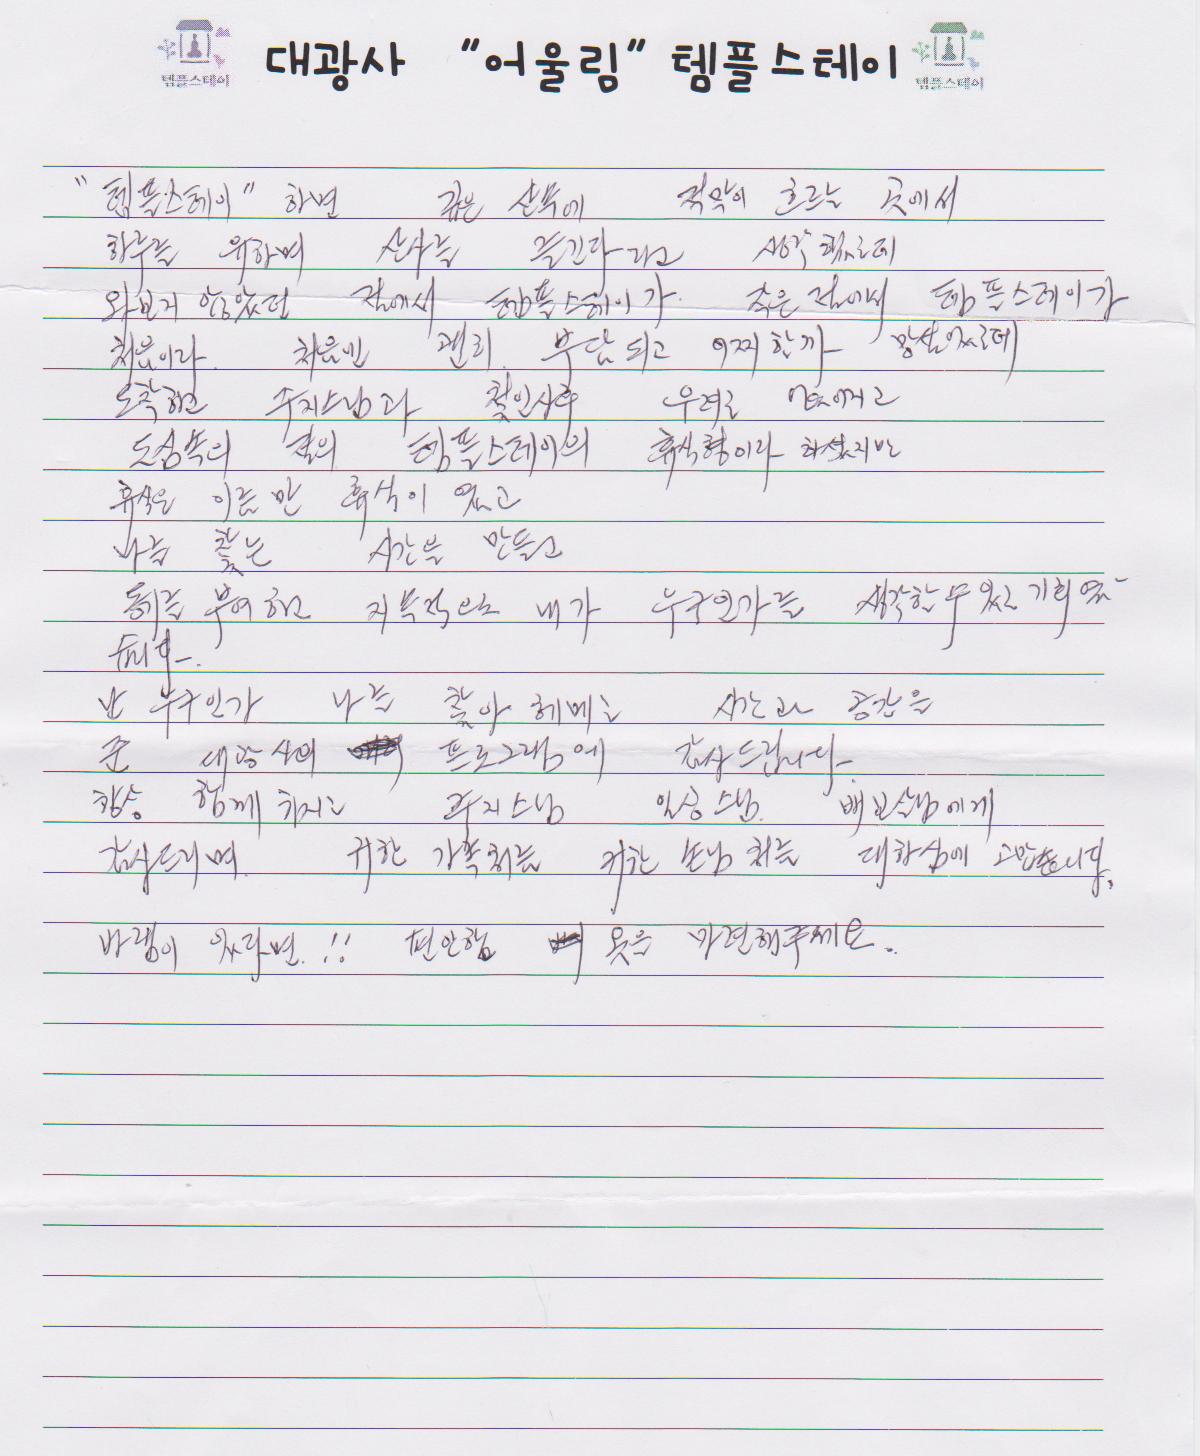 템플스테이 대광사 "어울림" 템플스테이 템플스테이
"템플스테이" 하면 깊은 산속에 적막이 흐르는 곳에서
하루를 유하며 산사를 즐긴다라고 생각했는데
와보지 않았던 절에서 템플스테이가 작은 절에서 템플스테이가
처음이라. 처음엔 괜히 부담되고 어찌할까 망설였는데
도착하고 주지스님과 첫인사후 우려로 없어지고
도심속의 절의 템플스테이의 휴식형이라 하셨지만
휴식은 이름만 휴식이 였고
나를 찾는 시간을 만들고
동기를 부여하고 지속적으로 내가 누구인가를 생각할수 있는 기회였
습니다.
난 누구인가 나를 찾아 헤메는 시간과 공간을
준 대광사의 프로그램에 감사드립니다.
항상 함께 하시는 주지스님 스님. 에게
감사드리며. 귀한 가족처럼 귀한 손님처럼 대하심에 고맙습니다.
바램이 있다면.!! 편안함 옷을 마련해주세요..